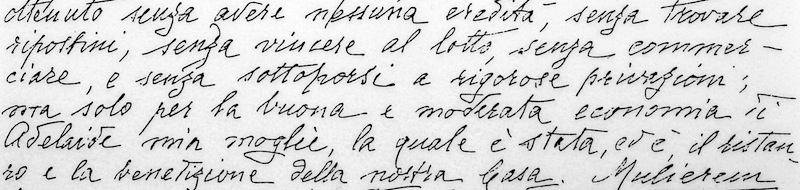 ottenuto senza avere nessuna eredità, senza trovare
ripostini, senza vincere al lotto, senza commer-
ciare, e senza sottoporsi a rigorose privazioni;
ma solo per la buona e moderata economia di
Adelaide mia moglie, la quale è stata, ed è, il ristau-
ro e la benedizione della nostra Casa. Mulierem